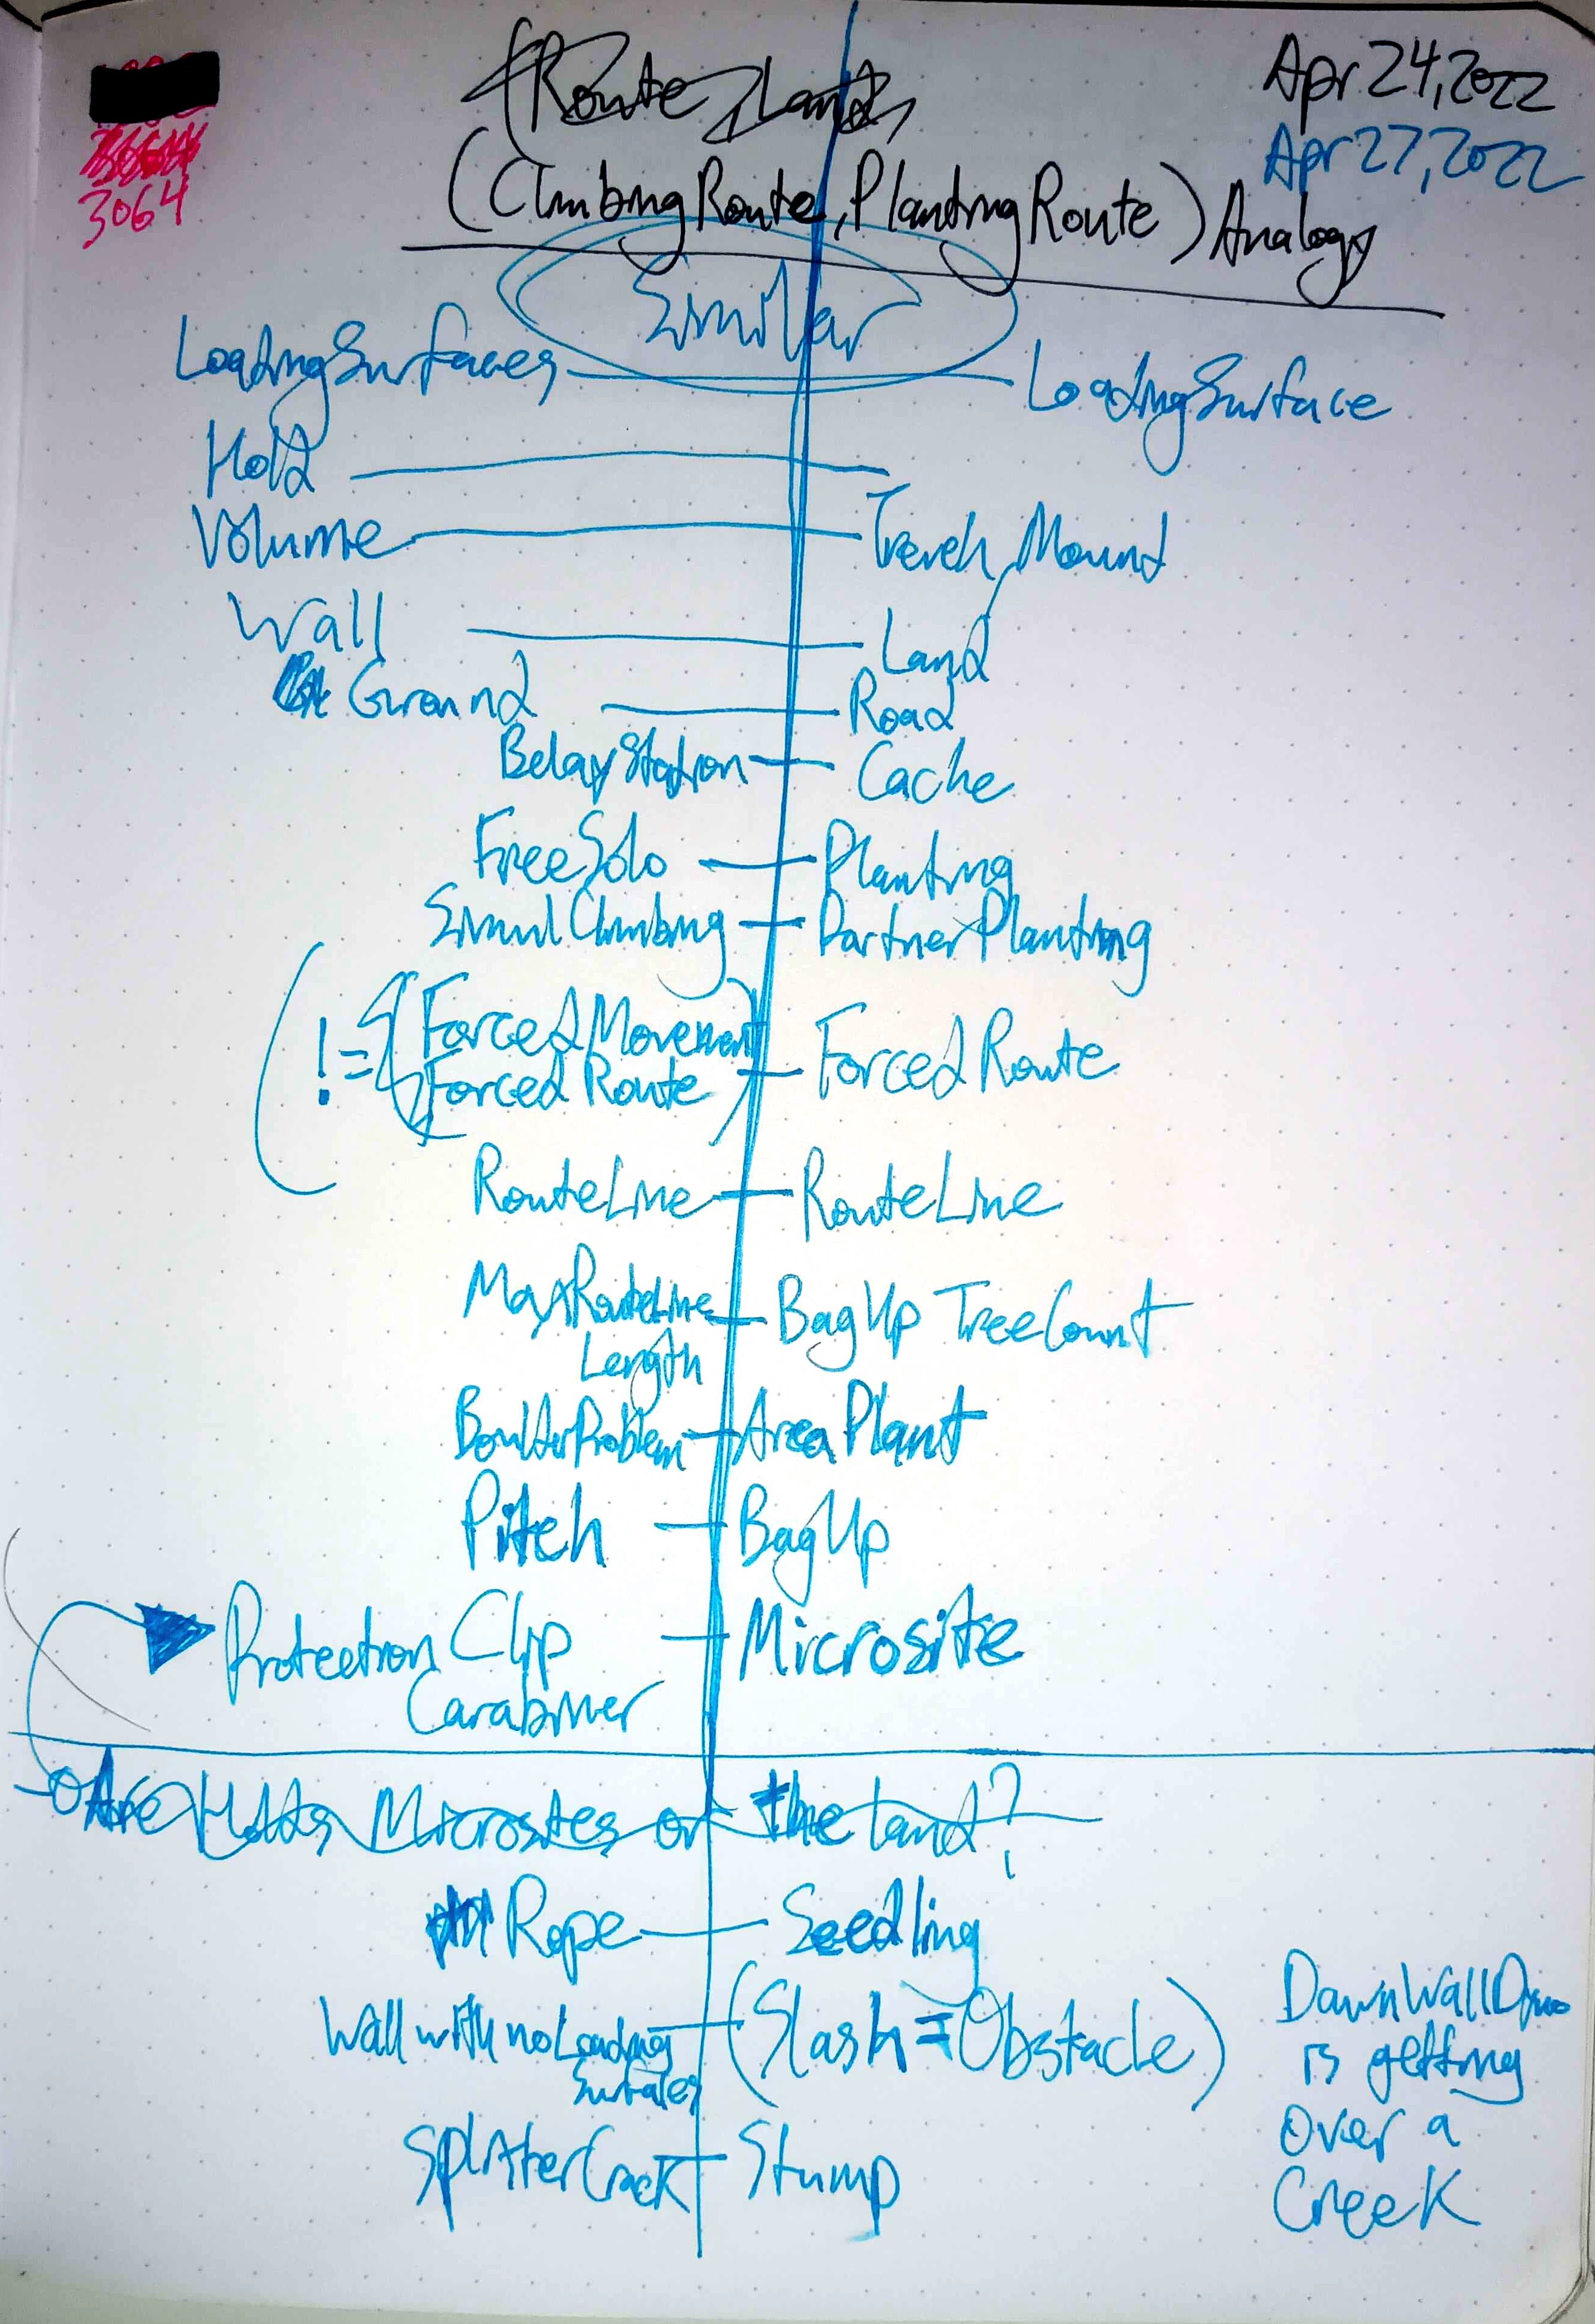 (Route, Land)
Apr 24, 2022
Apr 27, 2022
3064
(ClimbingRoute, PlantingRoute) Analogy
Similar
LoadingSurfaces — LoadingSurface
Hold —
Volume — Trench, Mound
Wall — Land
Ground — Road
BelayStation — Cache
FreeSolo — Planting
SimulClimbing — PartnerPlanting
(!= {ForcedMovement
ForcedRoute) — ForcedRoute
RouteLine — RouteLine
MaxRouteLine — BagUp TreeCount
Length
BoulderProblem — AreaPlant
Pitch — BagUp
Protection, Clip — Microsite
Carabiner
Are Holds Microsites or the land?
Rope — Seedling
Wall with no Loading — (Slash = Obstacle)
Surfaces
SplitterCrack — Stump
DawnWallDyno
is getting
over a
Creek